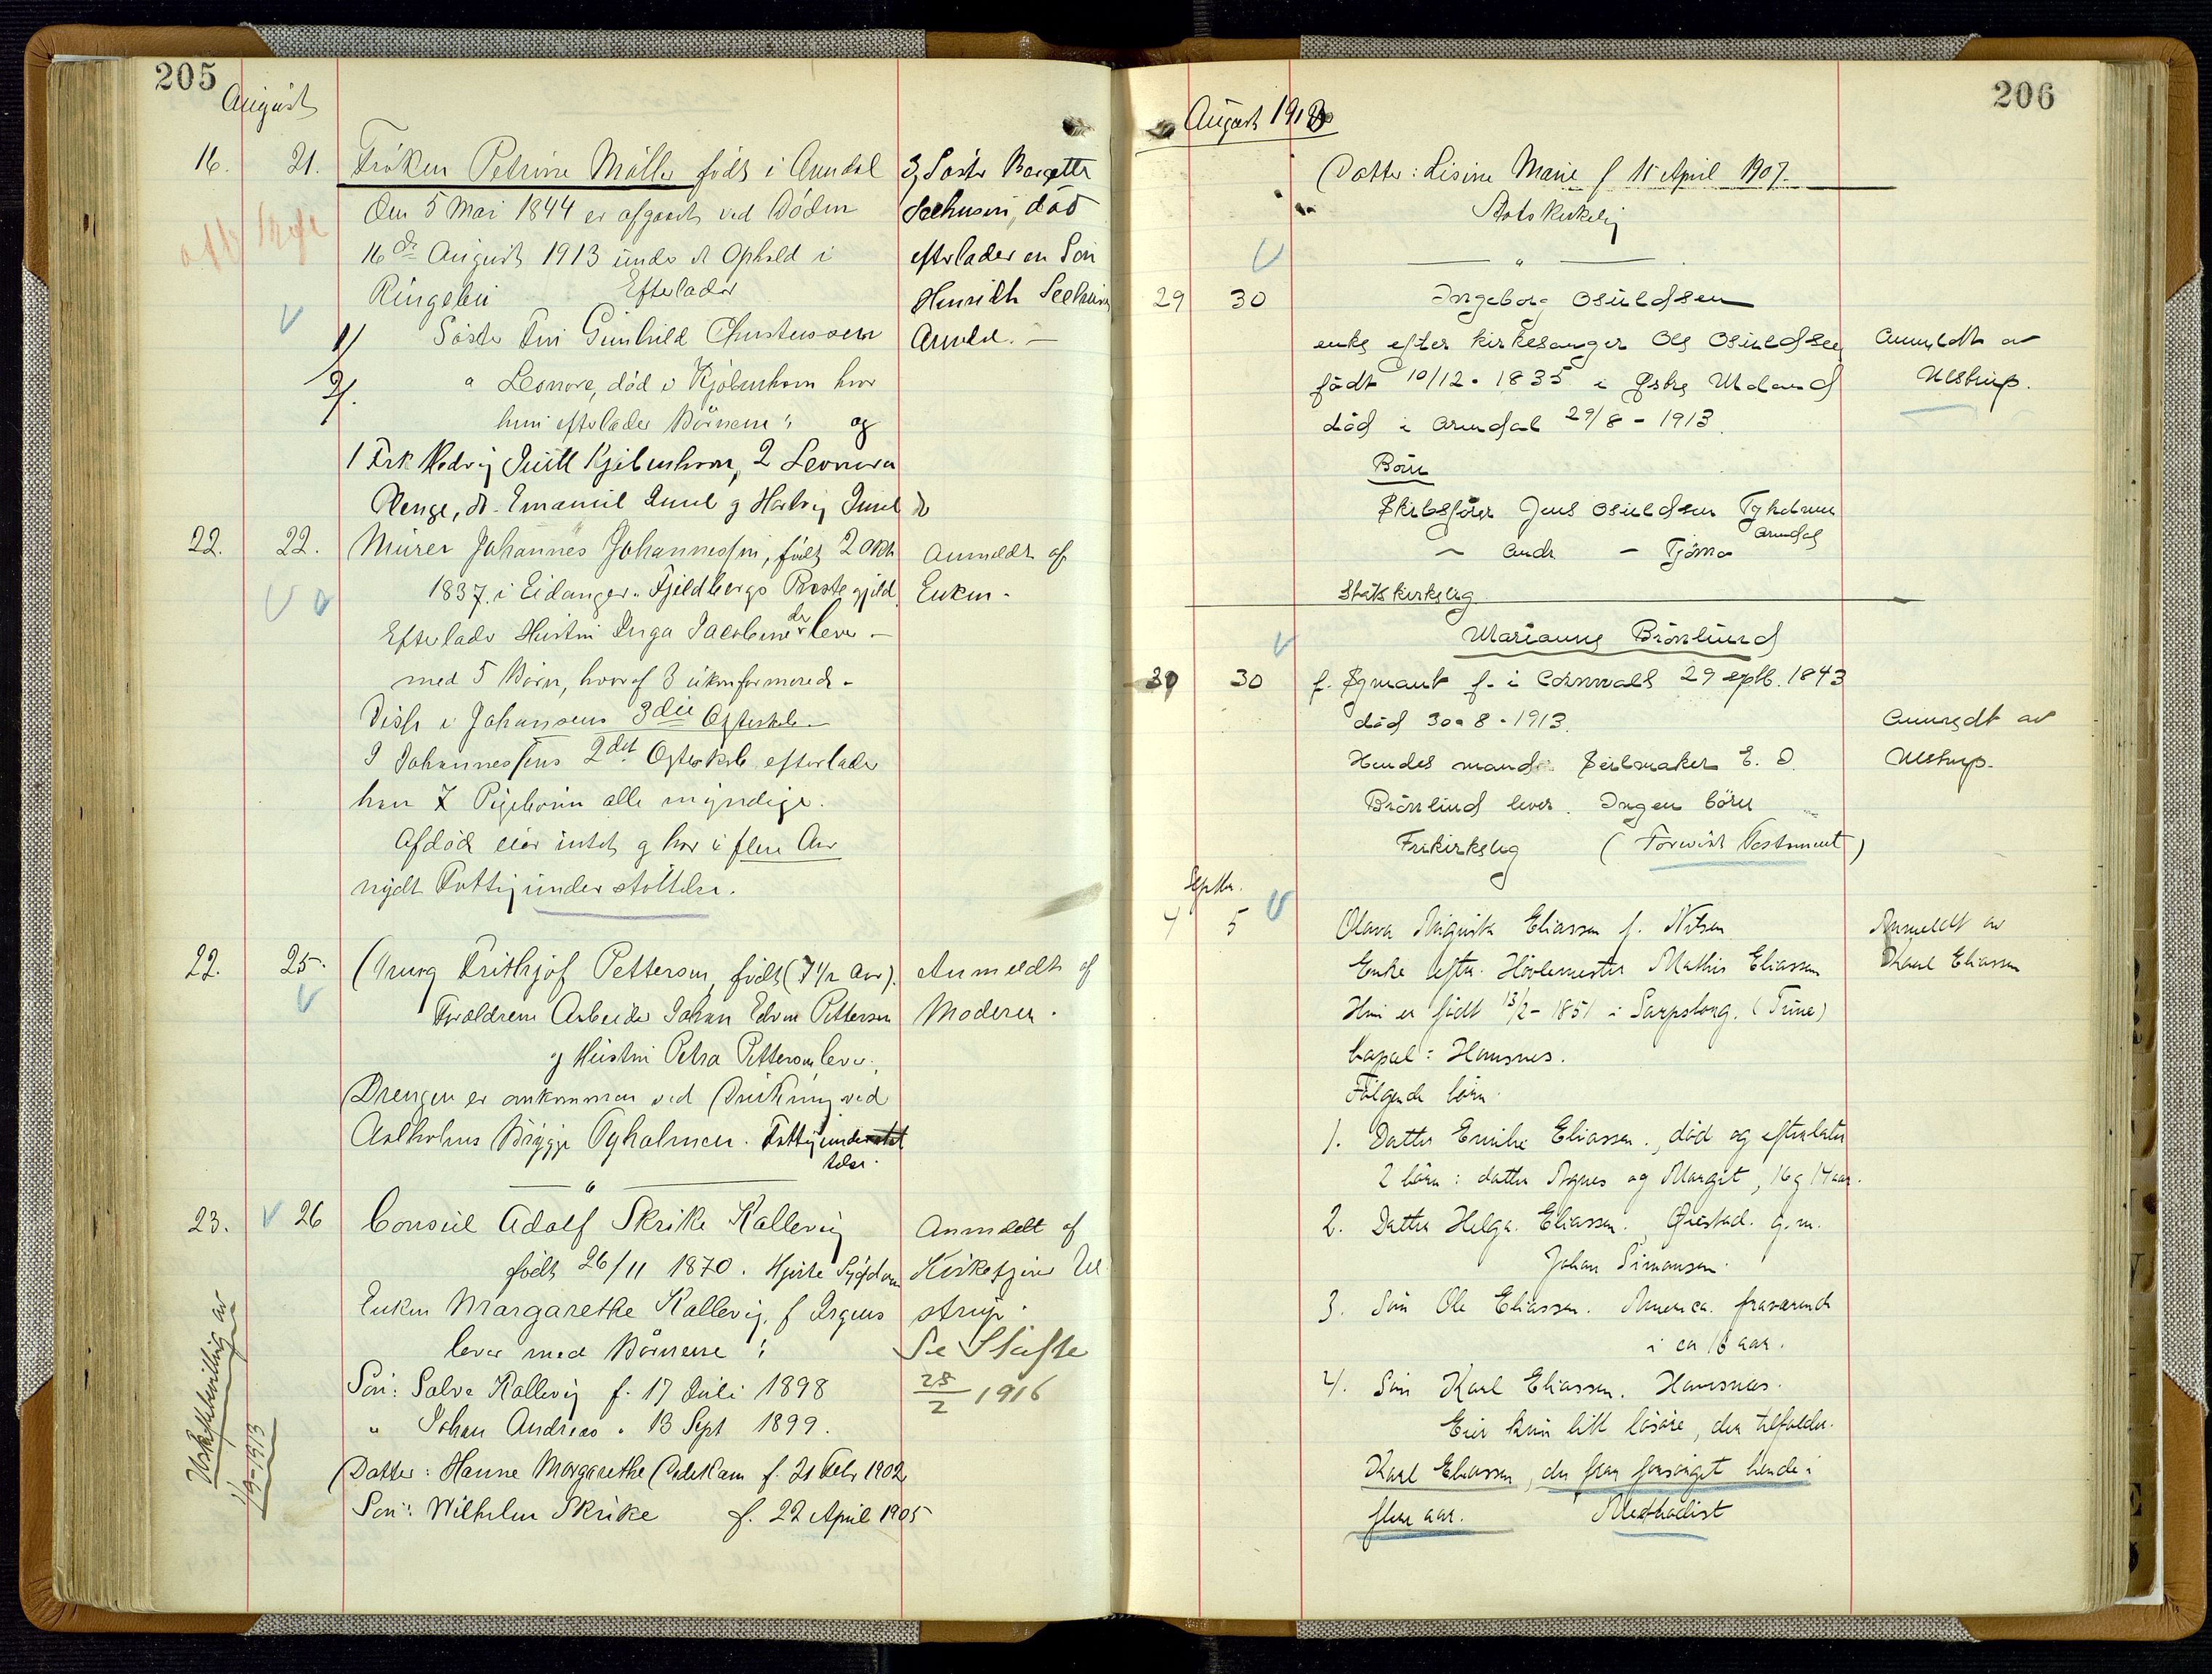 205
August
16. 21. Fröken Petrine Möller født i Arendal
Den 5 Mai 1844 er afgaaet ved Døden
16de August 1913 under et Ophold i
Ringebu Efterlader
1/ Søster Fru Gunhild Christensen
2/. " Leonore, død i Kjøbenhavn hvor
hun efterlader Børnene: og
1 Frk Hedvig Juell Kjøbenhavn, 2 Leonora
Penge, do. Emanuel Juul g Hartvig Juul do
3, Søster Bergette
Seehusen, død
efterlader en Søn
Henrik Seehusen
Arendal. –
22. 22. Murer Johannes Johannessen, født 2 Okt
1837. i Eidanger. Fjeldbergs Prestegjeld.
Efterlader Hustru Inga Jacobine der lever –
med 5 Børn, hvoraf 3 ukonfirmerede –
Disse i Johansens 3die Egteskab –
I Johannessens 2det Egteskab efterlader
han 7 Pigebørn alle myndige.
Afdøde eier intet g har i flere Aar
nydt Fattigunderstøttelse.
Anmeldt af
Enken –
22. 25. Georg Frithjof Petterson, født (7½ Aar).
Forældrene Arbeider Johan Edvin Petterson
g Hustru Petra Petterson lever.
Drengen er omkommen ved Drukning ved
Aalholms Brygge Tyholmen. Fattigunderstøt
telse.
Anmeldt af
Moderen.
23. 26 Consul Adolf Skrike Kallevig
født 26/11 1870. Hjerte Sygdom
Enken Margarethe Kallevig, f Irgens
lever med Børnene:
Søn: Salve Kallevig f. 17 Juli 1898
" Johan Andreas " 13 Sept 1899.
Datter: Hanne Margarethe Dedekam f. 21 Febr 1902
Søn: Wilhelm Skrike f. 22 April 1905
Anmeldt af
Kirketjener Ul
strup.
Se Skifte
28/2 1916
Uskiftebevilling av
1/9-1913
206
August 1913
Datter: Lisine Marie f 15 April 1907.
Statskirkelig
"
29 30 Ingeborg Osuldsen
enke efter kirkesanger Ole Osuldsen
født 10/12. 1835 i Østre Moland
død i Arendal 29/8 – 1913.
Børn
Skibsfører Jens Osuldsen Tyholmen
Arendal
~ Andr – Tjømø
Statskirkelig
Anmeldt av
Ulstrup.
Marianne Brönlund
30 30 f. Symant f. i Cornwall 29 septb. 1843
død 30 – 8 – 1913.
Hendes mand Seilmaker E. D.
Brönlund lever. Ingen børn
Frikirkelig (Forevist Testament)
Anmeldt av
Ulstrup.
Septbr.
4 5 Olava Augusta Eliassen f. Nilsen
Enke efter Høvlemester Mathis Eliassen
Hun er født 13/2 – 1851 i Sarpsborg. (Tune)
bopæl: Hansnes.
Følgende børn:
1. Datter Emilie Eliassen., død og efterlater
2 børn: datter Agnes og Margit, 16 g 14 aar.
2. Datter Helga Eliassen, Øiestad. g.m.
Johan Simonsen.
3. Søn Ole Eliassen. America. fraværende
i ca 16 aar.
4. Søn Karl Eliassen. Hansnæs.
Eier kun litt løsøre, der tilfalder
Karl Eliassen, der har forsørget hende i
flere aar. Methodist
Anmeldt av
Karl Eliassen